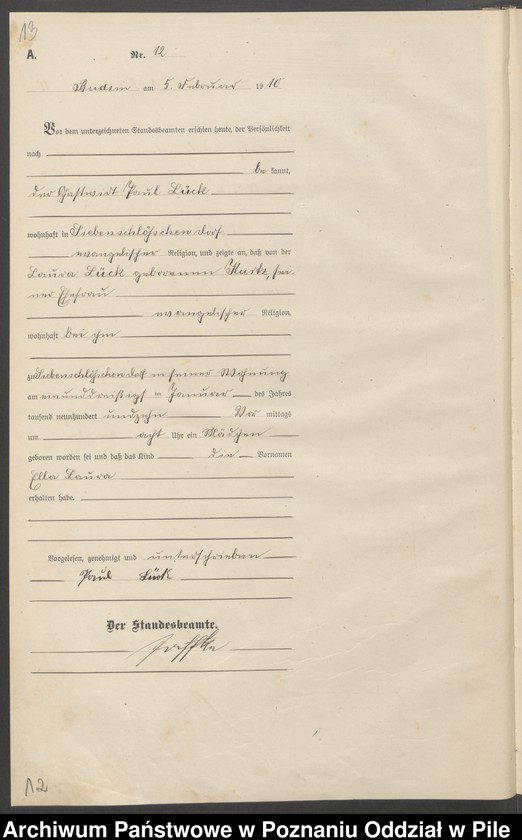 13
A.
Nr. 12
Budsin am 5 Februar 1910
Vor dem unterzeichneten Standesbeamten erschien heute, der Persönlichkeit
nach
be kannt,
der Gastwirt Paul Lück
wohnhaft in Siebenschlößchen dorf
evangelischer Religion, und zeigte an, daß von der
Laura Lück geborenen Kurtz, sei-
ner Ehefrau
evangelischer Religion,
wohnhaft bei ihm
zu Siebenschlößchen dorf in seiner Wohnung
am einunddreißigst en Januar des Jahres
tausend neunhundert undzehn Vor mittags
um acht Uhr ein Mädchen
geboren worden sei und daß das Kind die Vornamen
Ella Laura
erhalten habe.
Vorgelesen, genehmigt und unterschrieben
Paul Lück
Der Standesbeamte.
12
Archiwum Państwowe w Poznaniu Oddział w Pile